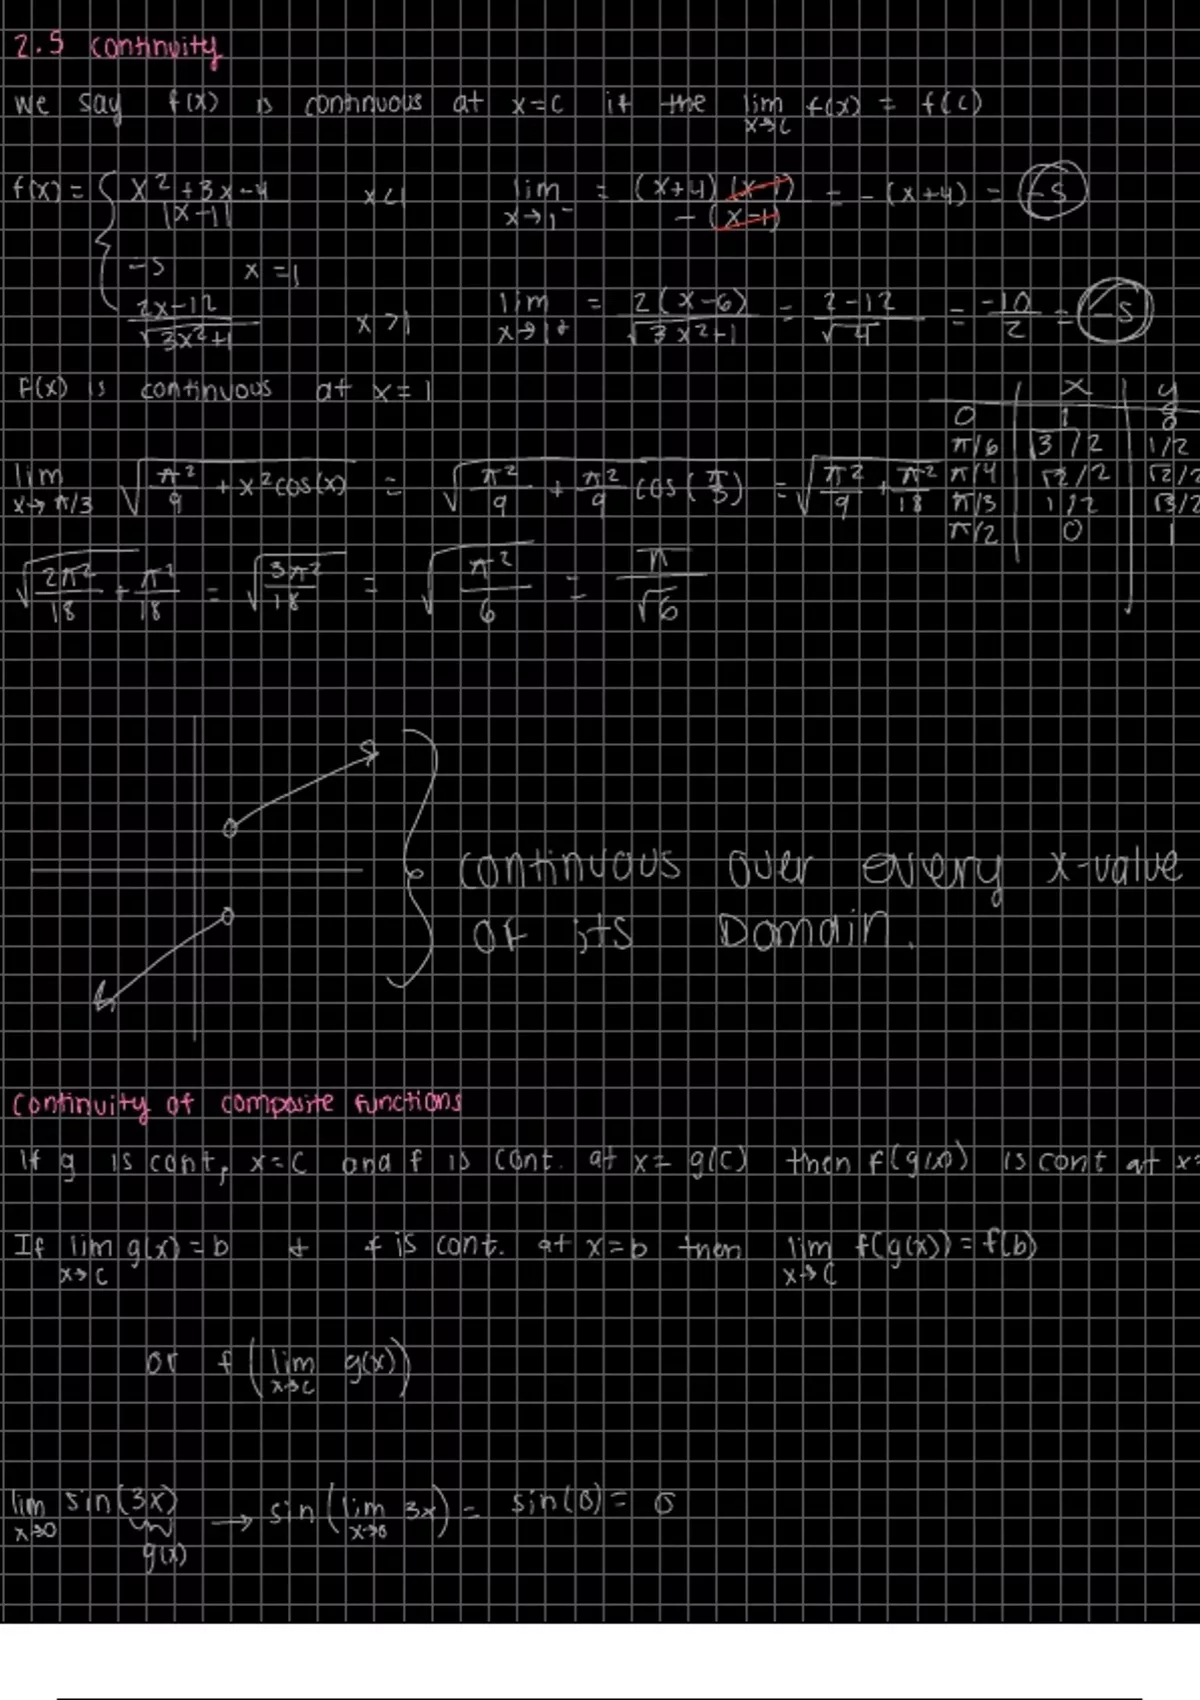 2.5 continuity
we say f(x) is continuous at x=c if the lim x→c f(x) = f(c)
f(x) = { x²+3x-4 / |x-1| x<1 lim x→1⁻ = (x+4)(x-1) / -(x-1) = -(x+4) = -5
-5 x=1
2x-12 / √3x²+1 x>1 lim x→1⁺ = 2(x-6) / √3x²+1 = 2-12 / √4 = -10/2 = -5
f(x) is continuous at x=1
lim x→π/3 √(π²/9 + x²cos(x)) = √(π²/9 + π²/9 cos(π/3)) = √(π²/9 + π²/18)
√(2π²/18 + π²/18) = √(3π²/18) = √(π²/6) = π/√6
x y
0 1 0
π/6 √3/2 1/2
π/4 √2/2 √2/2
π/3 1/2 √3/2
π/2 0 1
continuous over every x-value
of its Domain.
continuity of composite functions
If g is cont, x=c and f is cont. at x= g(c) then f(g(x)) is cont at x=
If lim x→c g(x) = b + f is cont. at x=b then lim x→c f(g(x)) = f(b)
or f(lim x→c g(x))
lim x→0 sin(3x) → sin(lim x→0 3x) = sin(0) = 0
g(x)